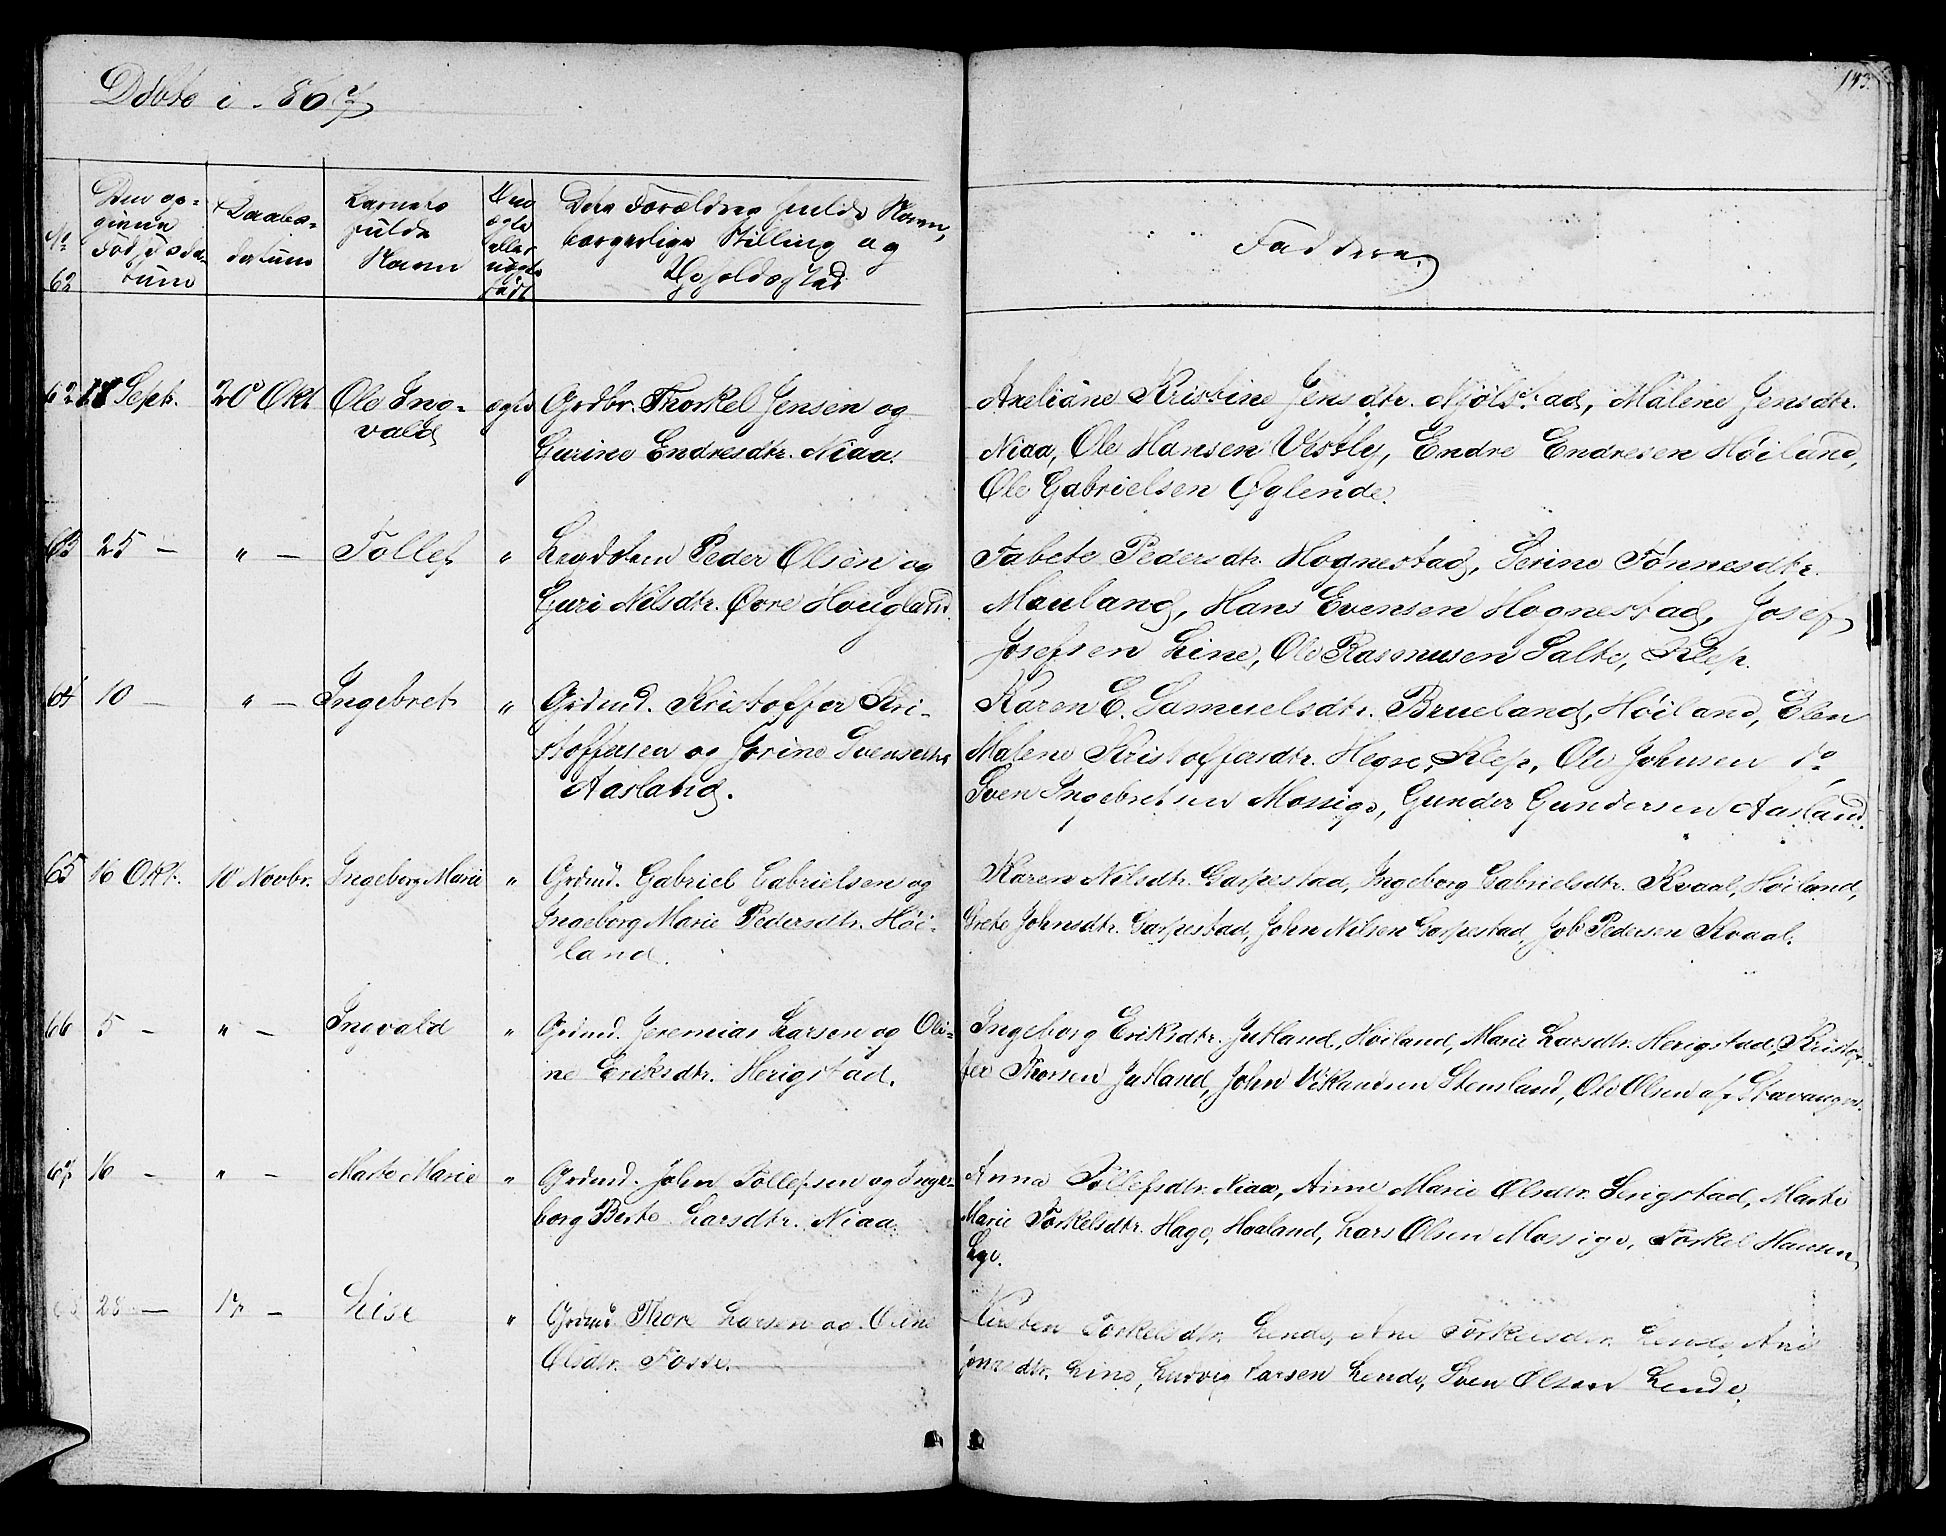 Døbte i 1867
143.
No
62
Den op-
givne
Fødselsda-
tum
Daabs-
datum
Barnets
fulde
Navn
Om
ægte
eller
uægte
født
Dets Forældres fulde Navn,
borgerlige Stilling og
Opholdssted
Faddere
62 18 Sept. 20 Okt Ole Ing- ægte Grdbr. Thorkel Jensen og
vald Gurine Endresdtr. Niaa.
Axeliane Kristine Jensdtr. Njølstad, Malene Jensdtr.
Niaa, Ole Hansen Vestly, Endre Endresen Høiland,
Ole Gabrielsen Øglende.
63 25 — " — Tollef " Lægdslem Peder Olsen og
Guri Nilsdtr. Øvre Hougland.
Tabete Pedersdtr. Hognestad, Serine Tønnesdtr.
Mauland, Hans Evensen Hognestad, Josef
Josefsen Line, Ole Rasmusen Salte, Klep.
64 10 — " — Ingebret " Grdmd. Kristoffer Kri-
stoffersen og Jorine Svensdtr
Aasland.
Karen E. Samuelsdtr. Brueland, Høiland, Elen
Malene Kristoffersdtr. Hegre, Klep, Ole Johnsen do,
Sven Ingebretsen Mossige, Gunder Gundersen Aasland.
65 16 Okt. 10 Novbr. Ingeborg Marie " Grdmd. Gabriel Gabrielsen og
Ingeborg Marie Pedersdtr. Høi-
land.
Karen Nilsdtr. Garpestad, Ingeborg Gabrielsdtr. Kvaal, Høiland,
Grete Johnsdtr. Garpestad, John Nilsen Garpestad, Job Pedersen Kvaal.
66 5 — " — Ingvald " Grdmd. Jeremias Larsen og Oli-
ne Eriksdtr. Herigstad.
Ingeborg Eriksdtr. Jutland, Høiland, Marie Larsdtr. Herigstad, Kristof-
fer Thorsen Jutland, John Vikandsen Stensland, Ole Olsen af Stavanger.
67 16 — " — Marte Marie " Grdmd. John Tollefsen og Inge-
borg Berte Larsdtr. Niaa.
Anna Tollefsdtr. Niaa, Anne Marie Olsdtr. Serigstad, Marte
Marie Torkelsdtr. Hage, Haaland, Lars Olsen Mossige, Torkel Hansen
Lye.
68 28 — 17 — Lise " Grdmd Thore Larsen og Oline
Olsdtr. Fosse.
Kirsten Torkelsdtr. Lende, Ane Torkelsdtr. Lende, Ane
Jonasdtr. Line, Ludvig Larsen Lende, Sven Olsen Lende.